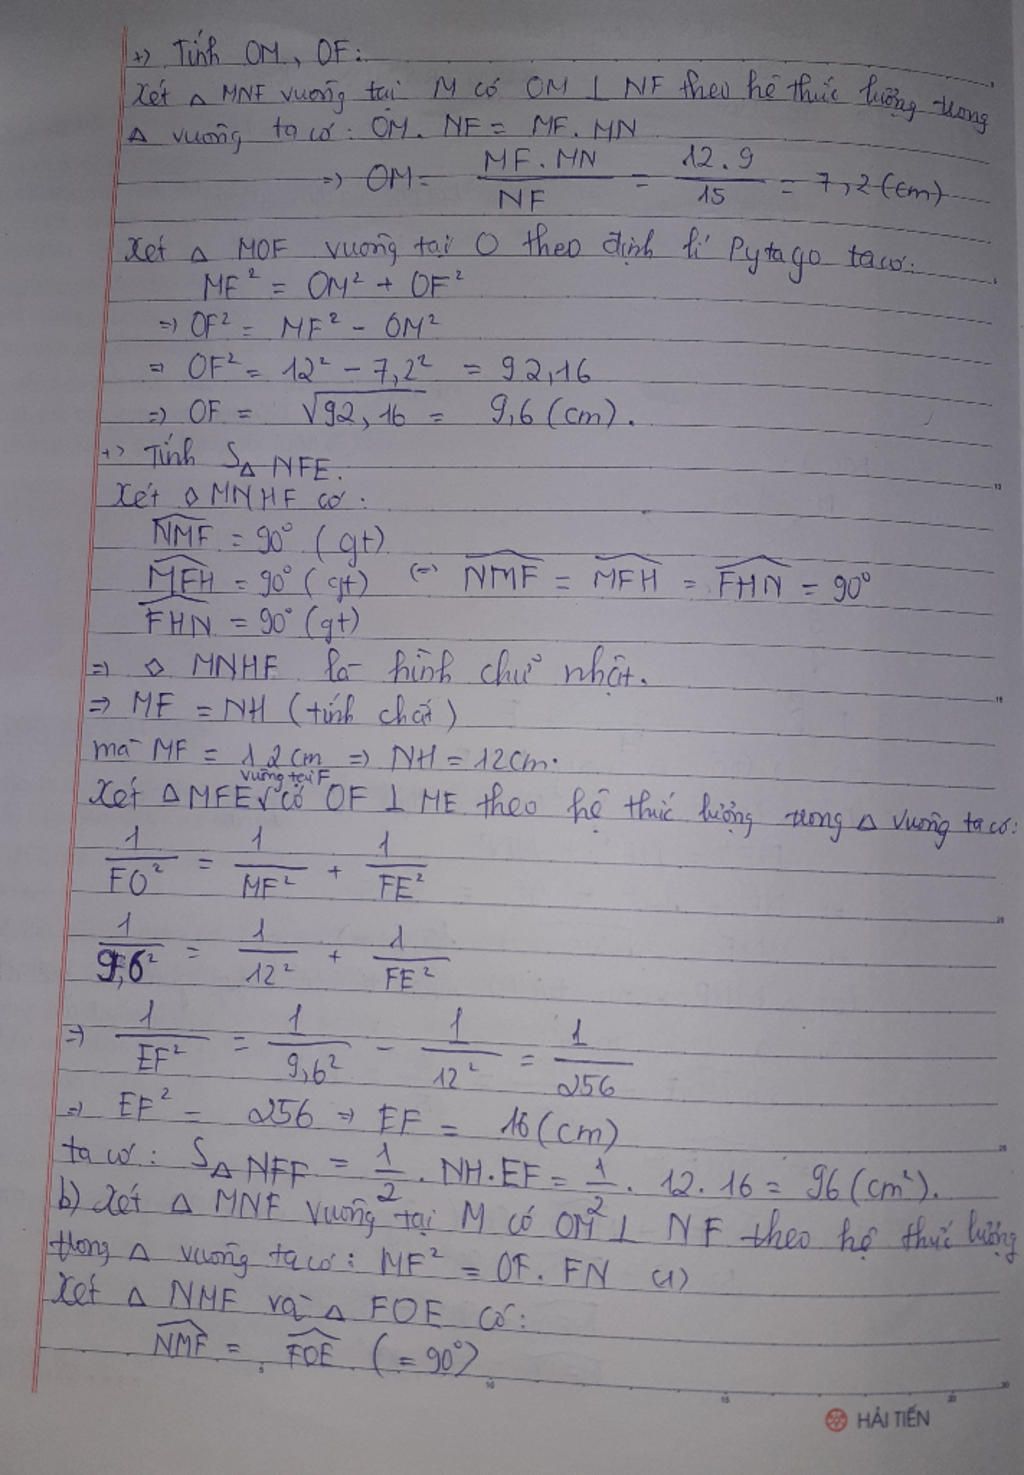 +) Tính OM, OF:
Xét △ MNF vuông tại M có OM ⊥ NF theo hệ thức lượng trong
△ vuông ta có: OM. NF = MF. MN
=> OM = MF.MN / NF = 12.9 / 15 = 7,2 (cm)
Xét △ MOF vuông tại O theo định lí Pytago ta có:
MF² = OM² + OF²
=> OF² = MF² - OM²
=> OF² = 12² - 7,2² = 92,16
=> OF = √92,16 = 9,6 (cm).
+) Tính S△ NFE.
Xét ◇ MNHF có:
NMF = 90° (gt)
MFH = 90° (gt) (=) NMF = MFH = FHN = 90°
FHN = 90° (gt)
=> ◇ MNHF là hình chữ nhật.
=> MF = NH (tính chất)
mà MF = 12cm => NH = 12cm.
vuông tại F
Xét △MFE √ có OF ⊥ ME theo hệ thức lượng trong △ vuông ta có:
1/FO² = 1/MF² + 1/FE²
1/9,6² = 1/12² + 1/FE²
=> 1/EF² = 1/9,6² - 1/12² = 1/256
=> EF² = 256 => EF = 16 (cm)
ta có: S△ NFF = 1/2 . NH.EF = 1/2 . 12.16 = 96 (cm²).
b) Xét △ MNF vuông tại M có OM ⊥ NF theo hệ thức lượng
trong △ vuông ta có: MF² = OF. FN (1)
Xét △ NMF và △ FOE có:
NMF = FOE (= 90°)
HẢI TIẾN